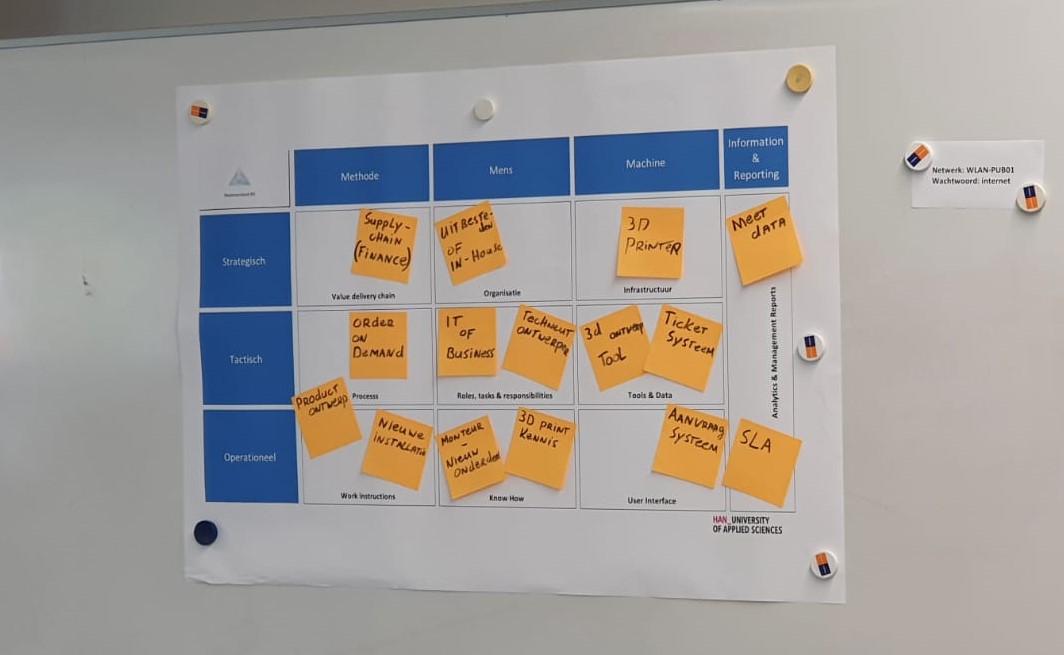 Methode
Mens
Machine
Information
&
Reporting
Netwerk: WLAN-PUB01
Wachtwoord: internet
Strategisch
SUPPLY-
CHAIN
(FINANCE)
Value delivery chain
UITBESTE-
DEN
OF
IN-HOUSE
Organisatie
3D
PRINTER
Infrastructuur
MEET
DATA
Tactisch
ORDER
ON
DEMAND
Process
IT
OF
BUSINESS
TECHNEUT
ONTWERPER
Roles, tasks & responsibilities
3d ONTWERP
TOOL
TICKET
SYSTEEM
Tools & Data
Analytics & Management Reports
Operationeel
PRODUCT
ONTWERP
NIEUWE
INSTALLATIE
Work instructions
MONTEUR
-
NIEUW
ONDERDEEL
3D PRINT
KENNIS
Know How
AANVRAAG
SYSTEEM
User Interface
SLA
HAN_UNIVERSITY
OF APPLIED SCIENCES